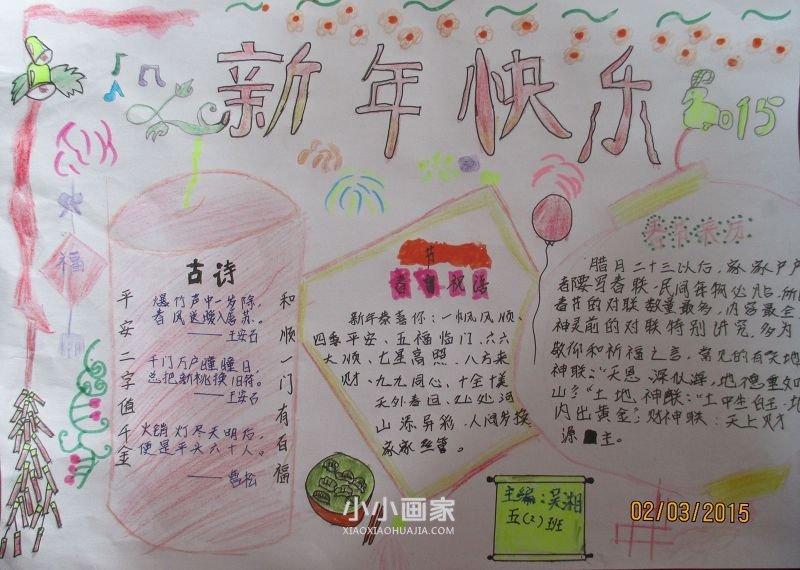 新年快乐
2015
古诗
平安二字值千金
爆竹声中一岁除,
春风送暖入屠苏.
——王安石
千门万户曈曈日
总把新桃换旧符。
——王安石
火销灯尽天明后,
便是平头六十人。
——曹松
和顺一门有百福
福
祝语
新年恭喜你:一帆风顺、
四季平安、五福临门、六六
大顺、七星高照、八方来
财、九九同心、十全十美
天外春回、处处河
山添异彩、人间岁换
家家丝管。
春节来历
腊月二十三以后,家家户户
都要写春联.民间年
春节的对联数量最多,内容最全
神灵前的对联特别讲究,多为
敬仰和祈福之言,常见的有
神联:"天恩深似海,地德重如
山"."土地神联:"土中生白玉,地
内出黄金";财神联:天上财
源 主。
主编:吴湘
五(2)班
小小画家
XIAOXIAOHUAJIA.COM
02/03/2015